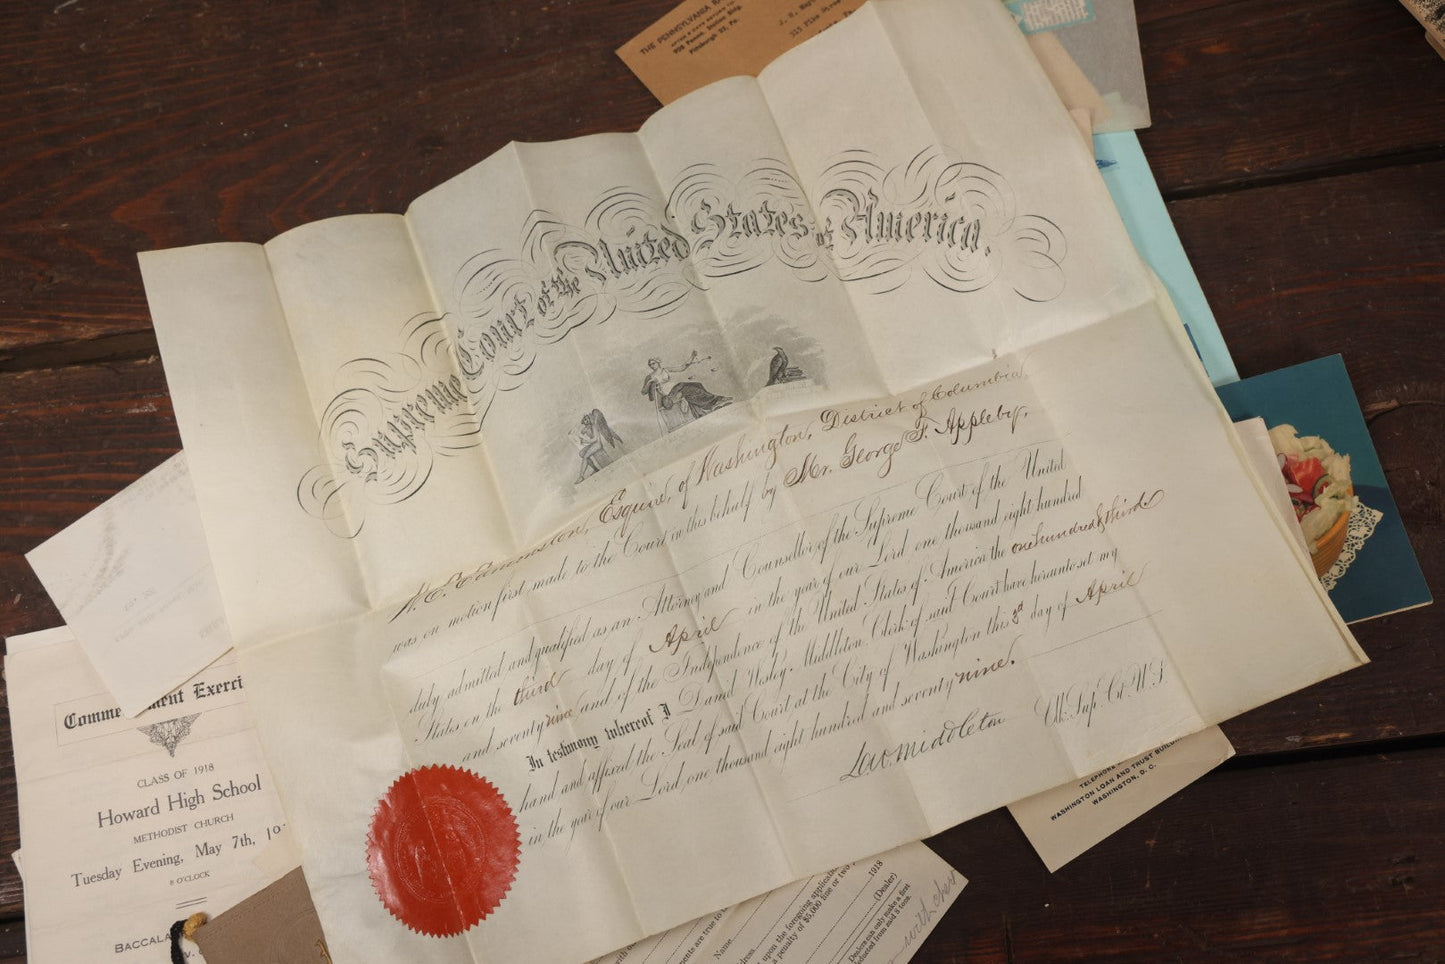 Supreme Court of the United States of America.
Esquire, of Washington, District of Columbia,
was on motion first made to the Court in this behalf by Mr. George F. Appleby,
duly admitted and qualified as an Attorney and Counsellor of the Supreme Court of the United
States on the third day of April in the year of our Lord one thousand eight hundred
and seventy nine and of the Independence of the United States of America the one hundred & third.
In testimony whereof I Daniel Wesley Middleton, Clerk of said Court have hereunto set my
hand and affixed the Seal of said Court at the City of Washington this 3d day of April
in the year of our Lord one thousand eight hundred and seventy nine.
D.W. Middleton
Clk. Sup. Ct. U.S.
THE PENNSYLVANIA
Pittsburgh 22, Pa.
Commencement Exerci
CLASS OF 1918
Howard High School
METHODIST CHURCH
Tuesday Evening, May 7th,
8 O'CLOCK
BACCALA
TELEPHONE
WASHINGTON LOAN AND TRUST BUILD
WASHINGTON, D. C.
upon the foregoing
a penalty of $5,000 fine or two
1918
(Dealer)
Dealers can only make a first
Name